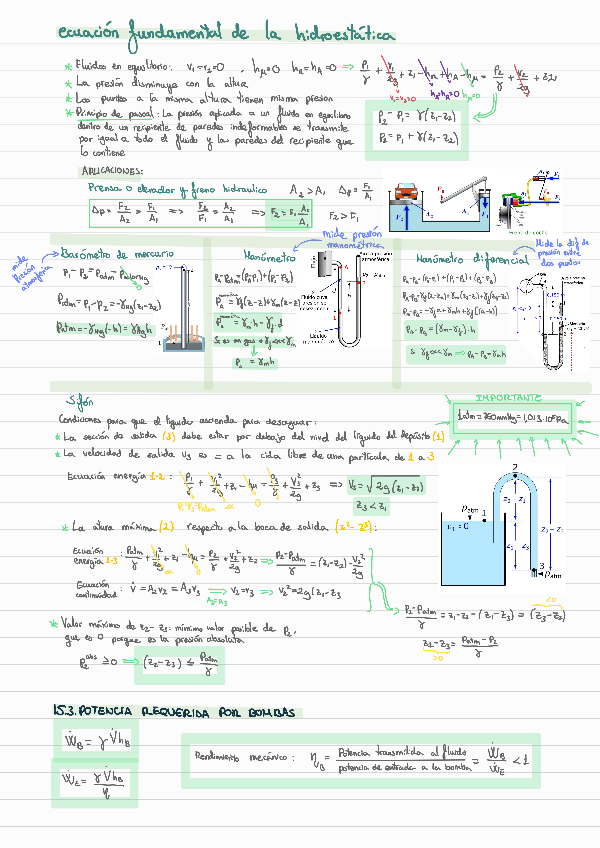 ecuación fundamental de la hidroestática
* Fluidos en equilibrio: v₁=v₂=0 , hμ=0 hR=hA=0 ⇒ P₁/γ + v₁²/2g + z₁ - hR + hA - hμ = P₂/γ + v₂²/2g + z₂
v₁=v₂=0 hR=hA=0 hμ=0
* La presión disminuye con la altura
* Los puntos a la misma altura tienen misma presión
* Principio de pascal: La presión aplicada a un fluido en equilibrio
dentro de un recipiente de paredes indeformables se transmite
por igual a todo el fluido y las paredes del recipiente que
lo contiene
P₂ - P₁ = γ(z₁-z₂)
P₂ = P₁ + γ(z₁-z₂)
APLICACIONES:
Prensa o elevador y freno hidraulico A₂ > A₁ Δp = F₁/A₁
Δp = F₂/A₂ = F₁/A₁ ⇒ F₂/F₁ = A₂/A₁ ⇒ F₂ = F₁ A₂/A₁ F₂ > F₁
Freno de coche
mide presión atmosférica
Barómetro de mercurio
P₁ - P₂ = Patm - PvaporHg
Patm = P₁ - P₂ = -γHg(z₁-z₂)
Patm = -γHg(-h) = γHg h
mide presión manométrica
Manómetro
Pₐ - Patm = (Pₐ-P₁)+(P₁-P₂)
Pₐ = γm h - γf d
Si es un gas → γf <<< γm
Pₐ = γm h
Mide la dif de presión entre dos puntos
Manómetro diferencial
Pₐ - P₈ = (γm - γf) h
si γf <<< γm ⇒ Pₐ - P₈ = γm h
Sifón
Condiciones para que el líquido ascienda para desaguar:
* La sección de salida (3) debe estar por debajo del nivel del líquido del depósito (1)
* La velocidad de salida v₃ es = a la caída libre de una partícula de 1 a 3
IMPORTANTE
1 atm = 760mmHg = 1,013·10⁵Pa
Ecuación energía 1-2: P₁/γ + v₁²/2g + z₁ - hμ = P₃/γ + v₃²/2g + z₃ ⇒ v₃ = √2g(z₁-z₃)
z₃ < z₁
* La altura máxima (2) respecto a la boca de salida (z²-z³):
Ecuación energía 1-3: Patm/γ + v₁²/2g + z₁ - hμ = P₂/γ + v₂²/2g + z₂ ⇒ P₂-Patm/γ = (z₁-z₂) - v₂²/2g
Ecuación continuidad: V̇ = A₂v₂ = A₃v₃ ⇒ v₂=v₃ ⇒ v₂²=2g(z₁-z₃)
A₂=A₃
P₂-Patm/γ = z₁-z₂-(z₁-z₃) = (z₃-z₂)
<0
z₂-z₃ = Patm-P₂/γ
>0
* Valor máximo de z₂-z₃: mínimo valor posible de P₂,
que es 0 porque es la presión absoluta
P₂ᵃᵇˢ ≥ 0 ⇒ (z₂-z₃) ≤ Patm/γ
2
Patm 1
v₁ = 0
z₂
z₁
z₃
z₂ - z₃
3
Patm
15.3. POTENCIA REQUERIDA POR BOMBAS
Ẇ_B = γ V̇ h_B
Ẇ_E = γ V̇ h_B / η
Rendimiento mecánico: η_B = Potencia transmitida al fluido / potencia de entrada a la bomba = Ẇ_B / Ẇ_E < 1